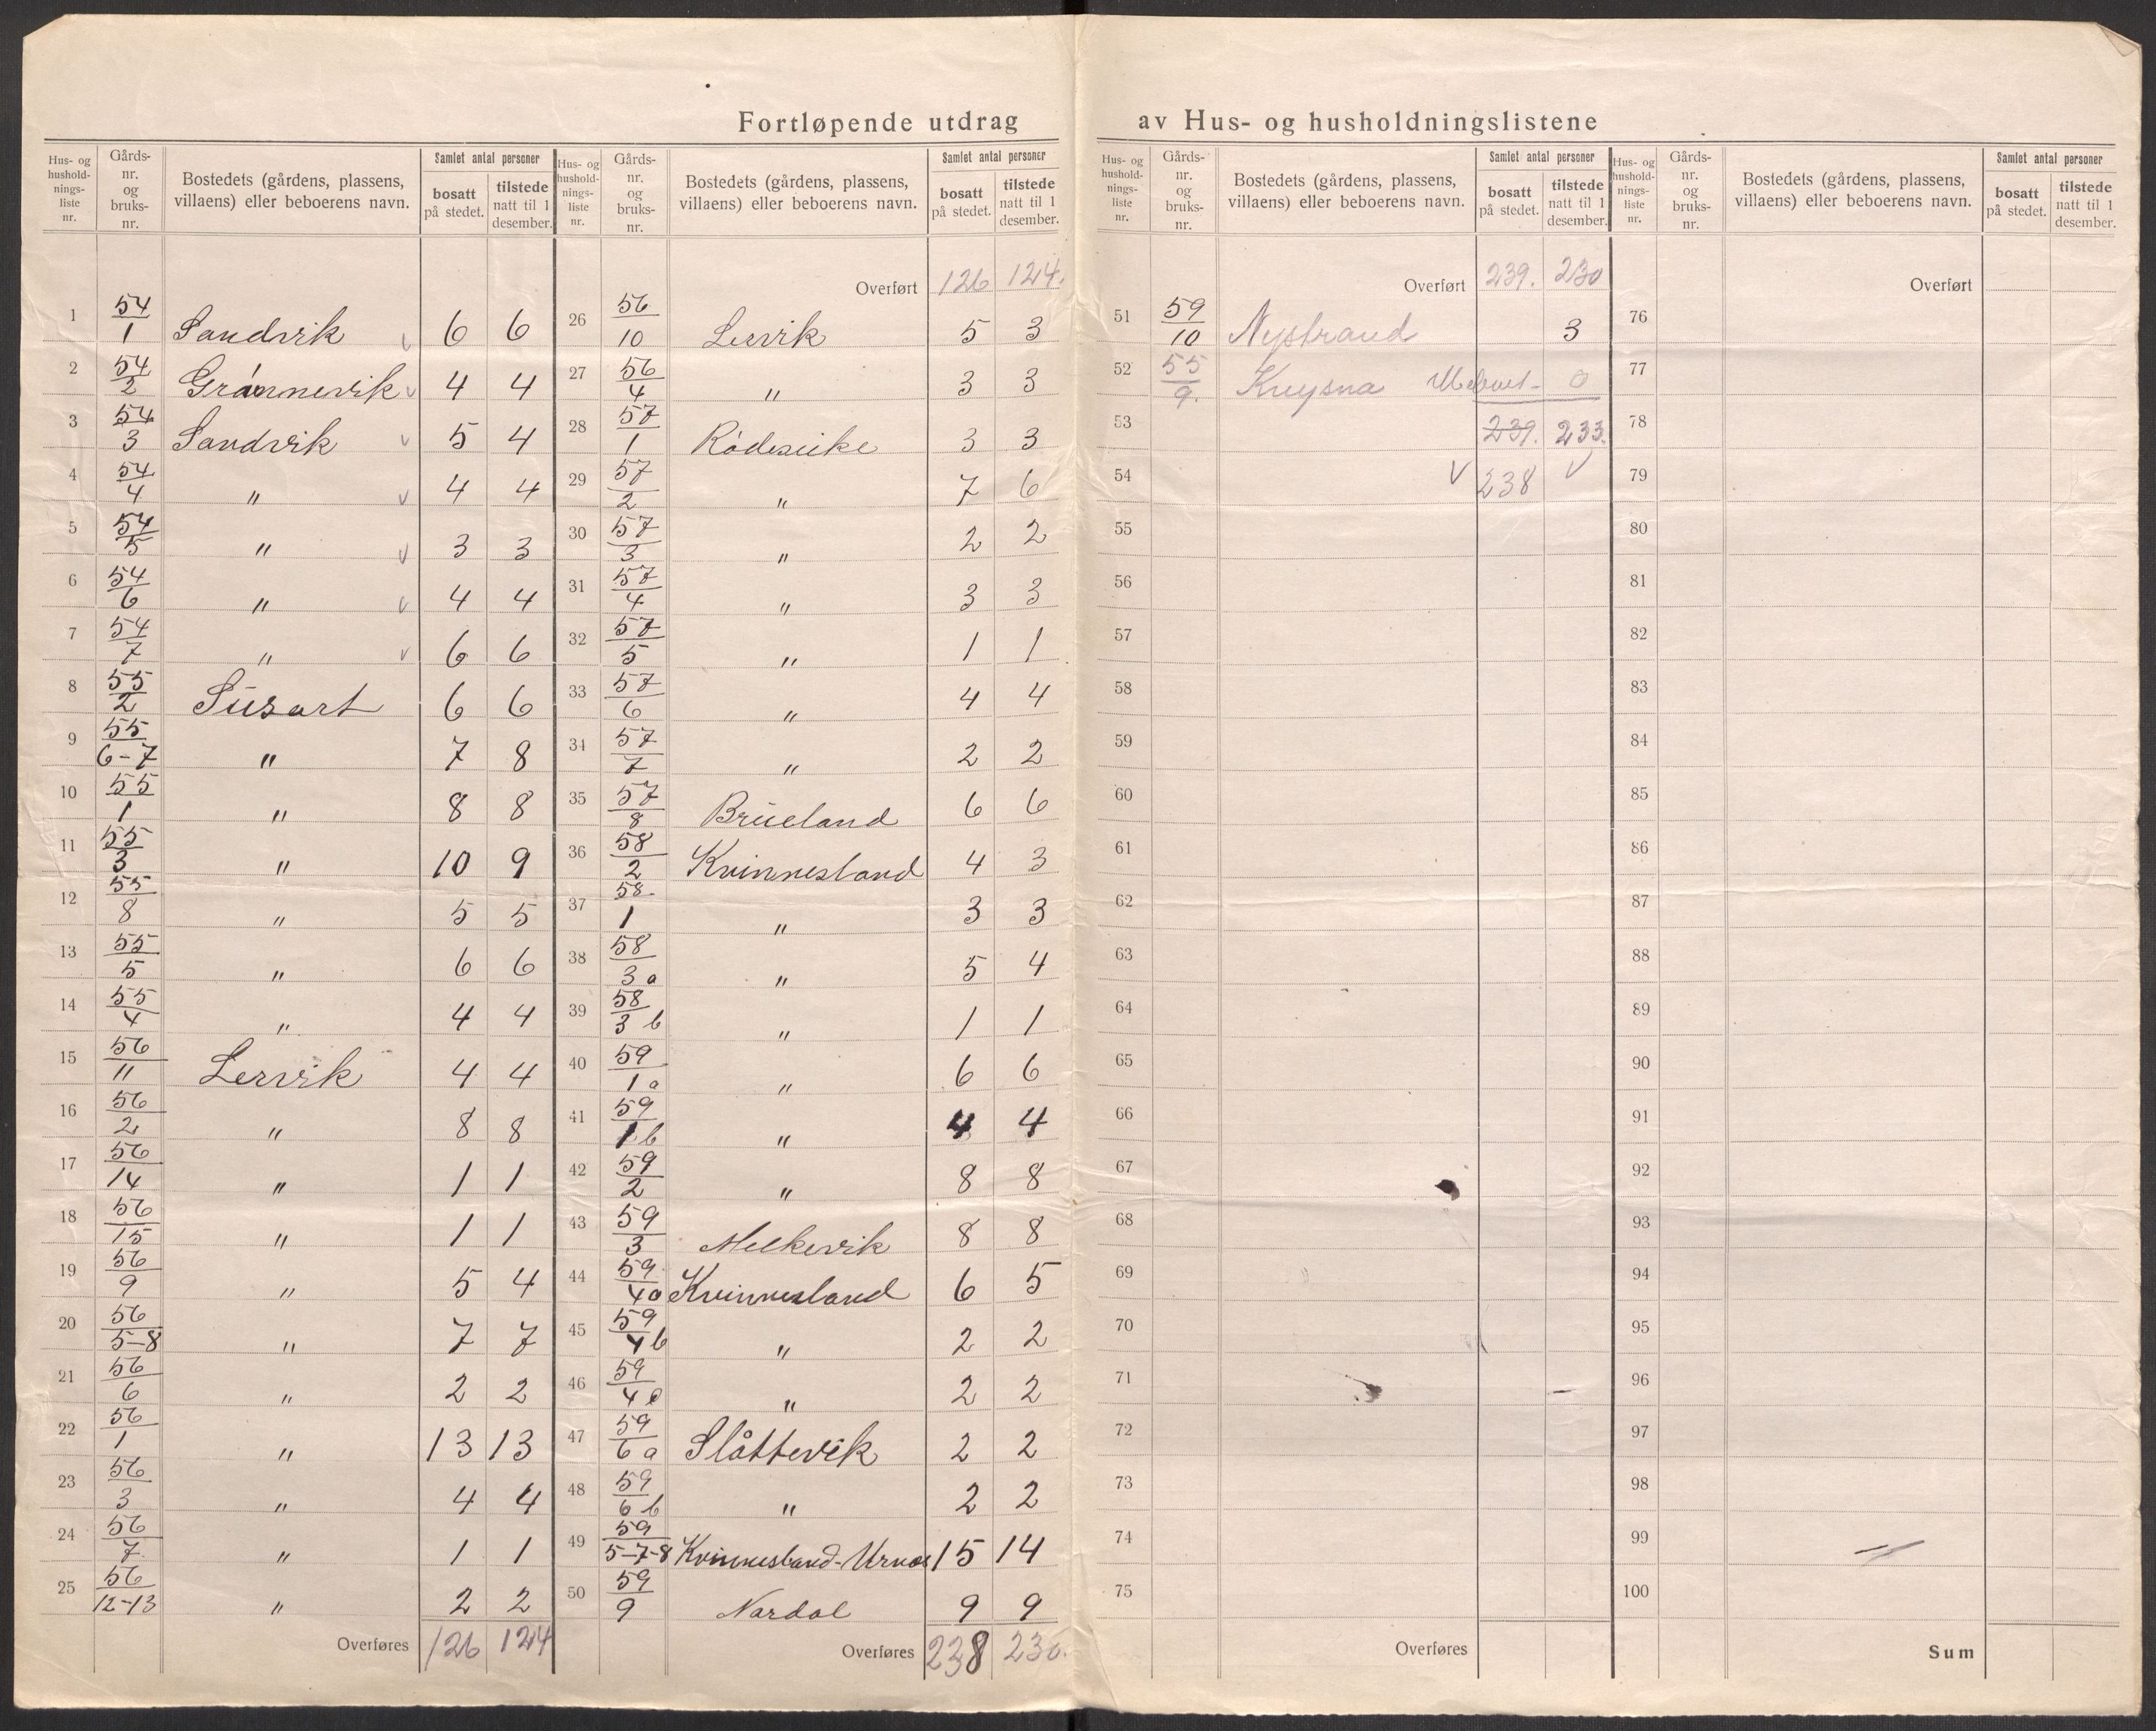 Fortløpende utdrag av Hus- og husholdningslistene
Hus- og hushold-nings-liste nr. | Gårds-nr. og bruks-nr. | Bostedets (gårdens, plassens, villaens) eller beboerens navn. | Samlet antal personer | bosatt på stedet. | tilstede natt til 1 desember.
1 54/1 Sandvik 6 6
2 54/2 Grønnevik 4 4
3 54/3 Sandvik 5 4
4 54/4 " 4 4
5 54/5 " 3 3
6 54/6 " 4 4
7 54/7 " 6 6
8 55/2 Susort 6 6
9 55/6-7 " 7 8
10 55/1 " 8 8
11 55/3 " 10 9
12 55/8 " 5 5
13 55/5 " 6 6
14 55/4 " 4 4
15 56/11 Lervik 4 4
16 56/2 " 8 8
17 56/14 " 1 1
18 56/15 " 1 1
19 56/9 " 5 4
20 56/5-8 " 7 7
21 56/6 " 2 2
22 56/1 " 13 13
23 56/3 " 4 4
24 56/7 " 1 1
25 56/12-13 " 2 2
Overføres 126 124
Hus- og hushold-nings-liste nr. | Gårds-nr. og bruks-nr. | Bostedets (gårdens, plassens, villaens) eller beboerens navn. | Samlet antal personer | bosatt på stedet. | tilstede natt til 1 desember.
Overført 126 124.
26 56/10 Lervik 5 3
27 56/4 " 3 3
28 57/1 Rødesike 3 3
29 57/2 " 7 6
30 57/3 " 2 2
31 57/4 " 3 3
32 57/5 " 1 1
33 57/6 " 4 4
34 57/7 " 2 2
35 57/8 Brueland 6 6
36 58/2 Kvinnesland 4 3
37 58/1 " 3 3
38 58/3a " 5 4
39 58/3b " 1 1
40 59/1a " 6 6
41 59/1b " 4 4
42 59/2 " 8 8
43 59/3 Melkevik 8 8
44 59/4a Kvinnesland 6 5
45 59/4b " 2 2
46 59/4c " 2 2
47 59/6a Slåttevik 2 2
48 59/6b " 2 2
49 59/5-7-8 Kvinnesland-Urnes 15 14
50 59/9 Nordal 9 9
Overføres 238 230.
Hus- og hushold-nings-liste nr. | Gårds-nr. og bruks-nr. | Bostedets (gårdens, plassens, villaens) eller beboerens navn. | Samlet antal personer | bosatt på stedet. | tilstede natt til 1 desember.
Overført 239. 230
51 59/10 Nystrand 3
52 55/9. Knysna Ubebuet - 0
53 239. 233.
54 238
55
56
57
58
59
60
61
62
63
64
65
66
67
68
69
70
71
72
73
74
75
Overføres
Hus- og hushold-nings-liste nr. | Gårds-nr. og bruks-nr. | Bostedets (gårdens, plassens, villaens) eller beboerens navn. | Samlet antal personer | bosatt på stedet. | tilstede natt til 1 desember.
Overført
76
77
78
79
80
81
82
83
84
85
86
87
88
89
90
91
92
93
94
95
96
97
98
99
100
Sum